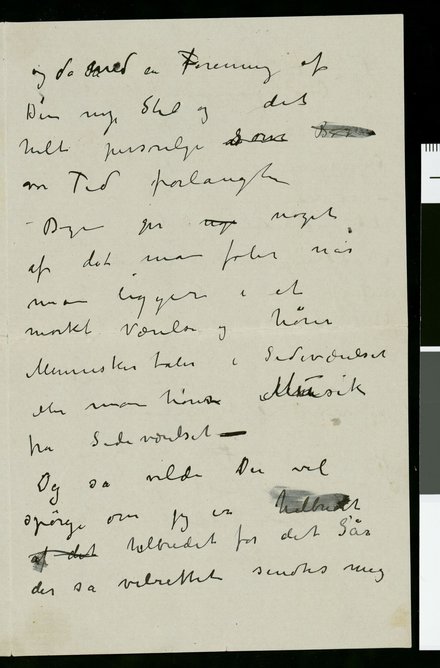 og da med en Forening af
Den nye Stil og det
helt personlige som
vor Tid forlangte
Byen gir noget
af det man føler når
man ligger i et
mørkt Værelse og hører
Mennesker taler i Sideværelset
eller man hører Musik
fra Sideværelset –
Og så vilde Du vel
spørge om jeg er helbredet
af det helbredet for det Sår
der så velrettet sendtes mig